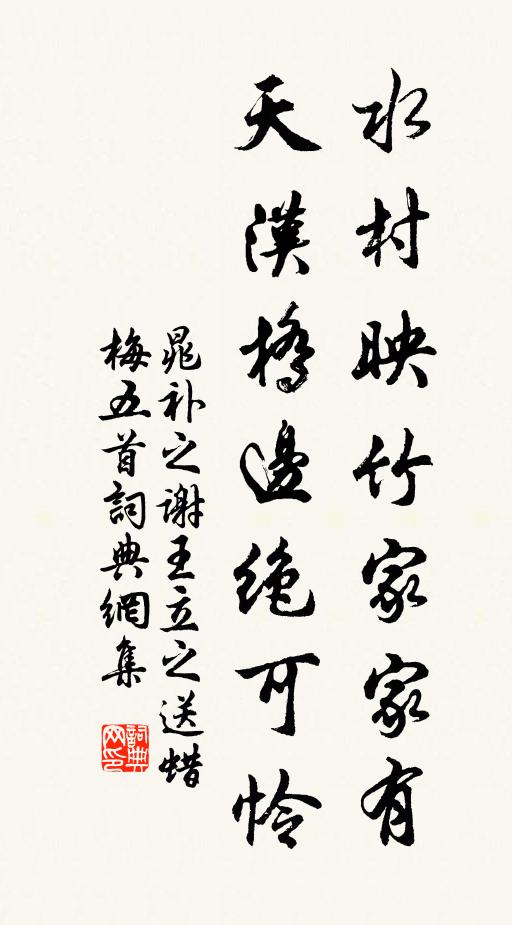 水村映竹家家有
天漢橋邊絶可怜
晁补之谢王立之送蜡
梅五首詞典網集
詞典
网印